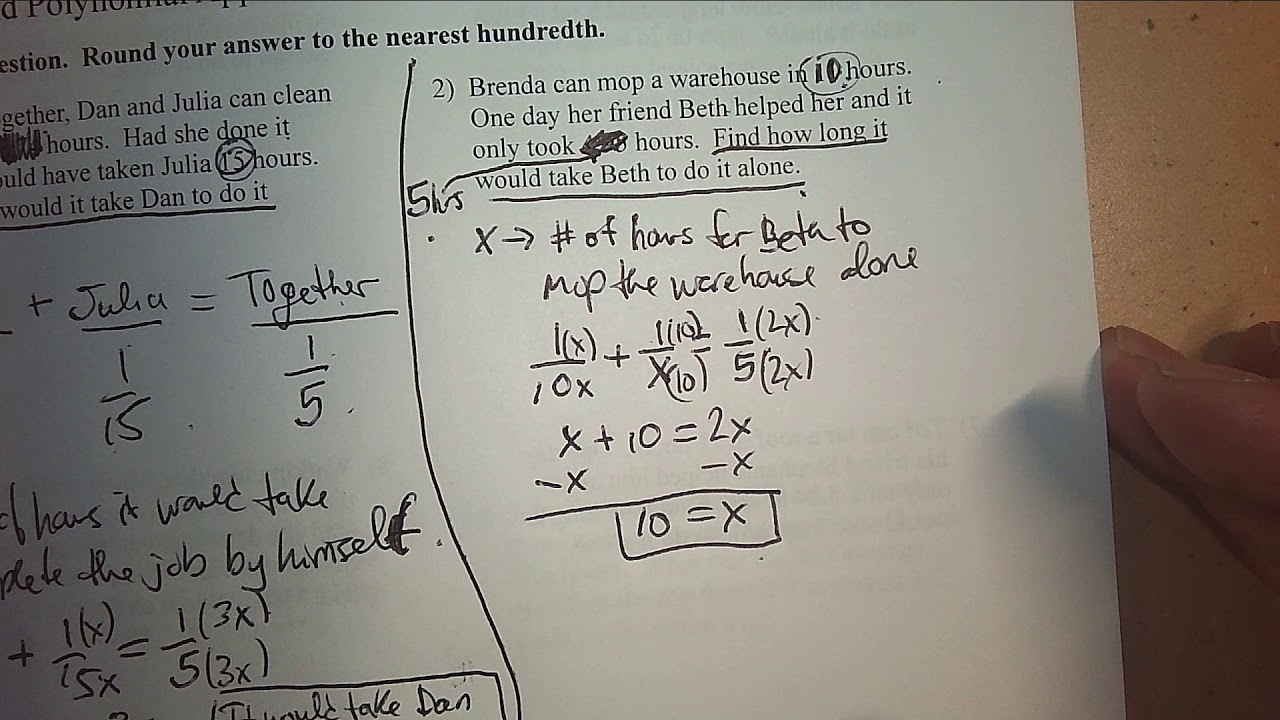 d Polynom
estion. Round your answer to the nearest hundredth.
gether, Dan and Julia can clean
hours. Had she done it
ould have taken Julia 15 hours.
would it take Dan to do it
+ Julia = Together
1/15 1/5
of hours it would take
plete the job by himself.
+ 1(x)/15x = 1(3x)/5(3x)
It would take Dan
2) Brenda can mop a warehouse in 10 hours.
One day her friend Beth helped her and it
only took hours. Find how long it
would take Beth to do it alone.
5hrs
x → # of hours for Beta to
mop the warehouse alone
1(x)/10x + 1(10)/x(10) = 1(2x)/5(2x)
x + 10 = 2x
-x -x
10 = x